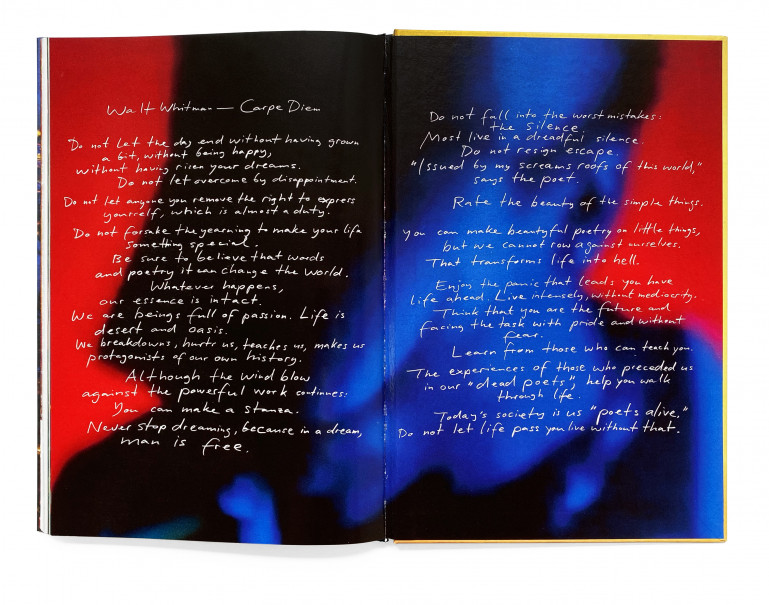 Walt Whitman — Carpe Diem
Do not let the day end without having grown
a bit, without being happy,
without having risen your dreams.
Do not let overcome by disappointment.
Do not let anyone you remove the right to express
yourself, which is almost a duty.
Do not forsake the yearning to make your life
something special.
Be sure to believe that words
and poetry it can change the world.
Whatever happens,
our essence is intact.
We are beings full of passion. Life is
desert and oasis.
We breakdowns, hurts us, teaches us, makes us
protagonists of our own history.
Although the wind blow
against the powerful work continues:
You can make a stanza.
Never stop dreaming, because in a dream,
man is free.
Do not fall into the worst mistakes:
the silence.
Most live in a dreadful silence.
Do not resign escape.
"Issued by my screams roofs of this world,"
says the poet.
Rate the beauty of the simple things.
You can make beautyful poetry on little things,
but we cannot row against ourselves.
That transforms life into hell.
Enjoy the panic that leads you have
life ahead. Live intensely, without mediocrity.
Think that you are the future and
facing the task with pride and without
fear.
Learn from those who can teach you.
The experiences of those who preceded us
in our "dead poets", help you walk
through life.
Today's society is us "poets alive,"
Do not let life pass you live without that.